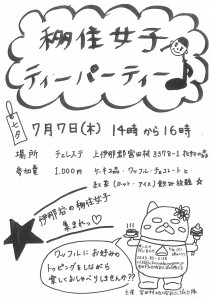 移住女子
ティーパーティー
七夕
7月7日(木) 14時から16時
場所 チェレステ 上伊那郡宮田村3378-1
参加費 1,000円 ケーキ2品・ワッフル・チョコレートと
紅茶(ホット・アイス)飲み放題
伊那谷の移住女子
集まれっ♡
ワッフルにお好みの
トッピングをしながら
楽しくおしゃべりしませんか??
主催